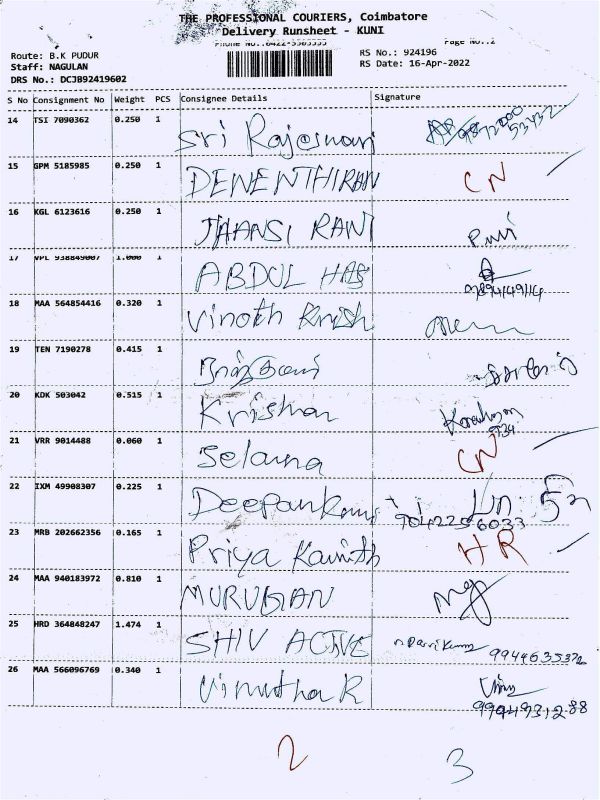 THE PROFESSIONAL COURIERS, Coimbatore
Delivery Runsheet - KUNI
Phone No.:0422-3303333 Page No.:2
Route: B.K PUDUR RS No.: 924196
Staff: NAGULAN RS Date: 16-Apr-2022
DRS No.: DCJB92419602
S No Consignment No Weight PCS Consignee Details Signature
14 TSI 7090362 0.250 1 Sri Rajeswari
15 GPM 5185985 0.250 1 DEWENTHIRAN CN
16 KGL 6123616 0.250 1 JHANSI RANI
17 VPL 938849007 1.000 1 ABDUL
18 MAA 564854416 0.320 1 Vinoth Krish
19 TEN 7190278 0.415 1
20 KDK 503042 0.515 1 Krishna
934
21 VRR 9014488 0.060 1 Selaina CN
22 IXM 49908307 0.225 1 Deepan
9042256033
23 MRB 202662356 0.165 1 Priya HR
24 MAA 940183972 0.810 1 MURUGAN
25 HRD 364848247 1.474 1 SHIV ACTIVE 9944635372
26 MAA 566096769 0.340 1 Vinutha K
9994931288
2 3